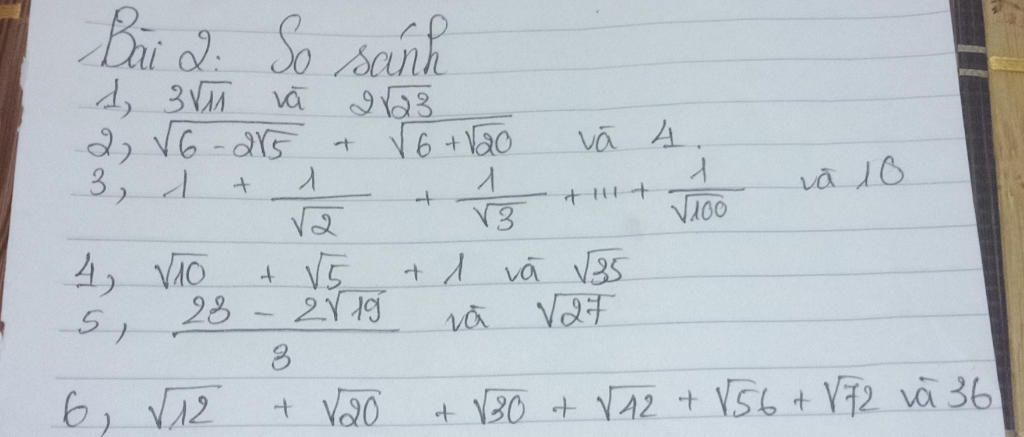 Bài 2: So sánh
1, 3√11 và 2√23
2, √(6 - 2√5) + √(6 + √20) và 4.
3, 1 + 1/√2 + 1/√3 + ... + 1/√100 và 10
4, √10 + √5 + 1 và √35
5, (23 - 2√19)/3 và √27
6, √12 + √20 + √30 + √42 + √56 + √72 và 36